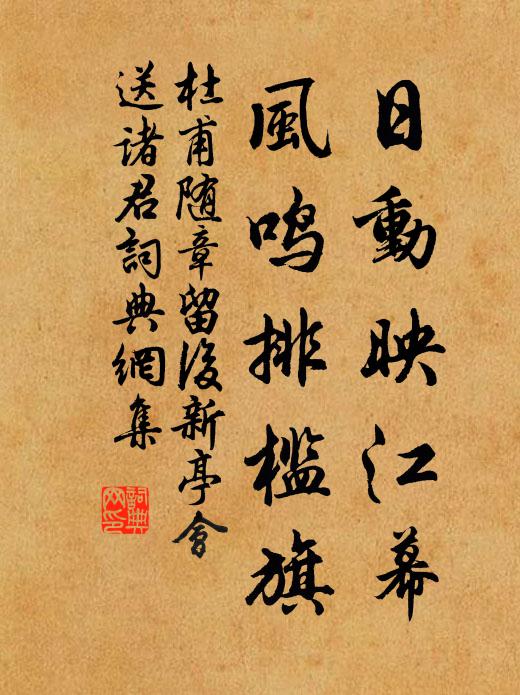 日動映江幕
風鳴排檻旗
杜甫随章留後新亭會
送诸君詞典網集
詞典网印